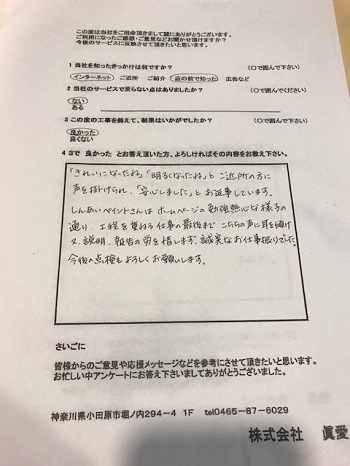 この度は当社をご用命頂きまして誠にありがとうございます。
ご利用になったご感想・ご意見などお聞かせ頂けますか？
今後のサービスに反映させて頂きたいと思います。
1 当社を知ったきっかけは何ですか？ （○で囲んで下さい）
インターネット ご近所 ご紹介 店の前で知った 広告など
2 当社のサービスで至らない点はありましたか？ （○で囲んでください）
ない
ある
3 この度の工事を終えて、結果はいかがでしたか？ （○で囲んで下さい）
良かった
良くない
4 3で 良かった とお答え頂いた方、よろしければその内容をお教え下さい。
「きれいになったね」「明るくなったね」と ご近所の方に
声を掛けられ、「安心しました」とお返事しています。
しんあいペイントさんは ホームページの 勉強熱心な様子の
通り、工程を重ねる仕事の最後まで こちらの声に耳を傾け
又、説明、報告の労を惜します。誠実なお仕事振りでした。
今後の点検もよろしくお願いします。
さいごに
皆様からのご意見や応援メッセージなどを参考にさせて頂きたいと思います。
お忙しい中アンケートにお答え下さいましてありがとうございました。
神奈川県小田原市堀ノ内294-4 1F tel0465-87-6029
株式会社 眞愛